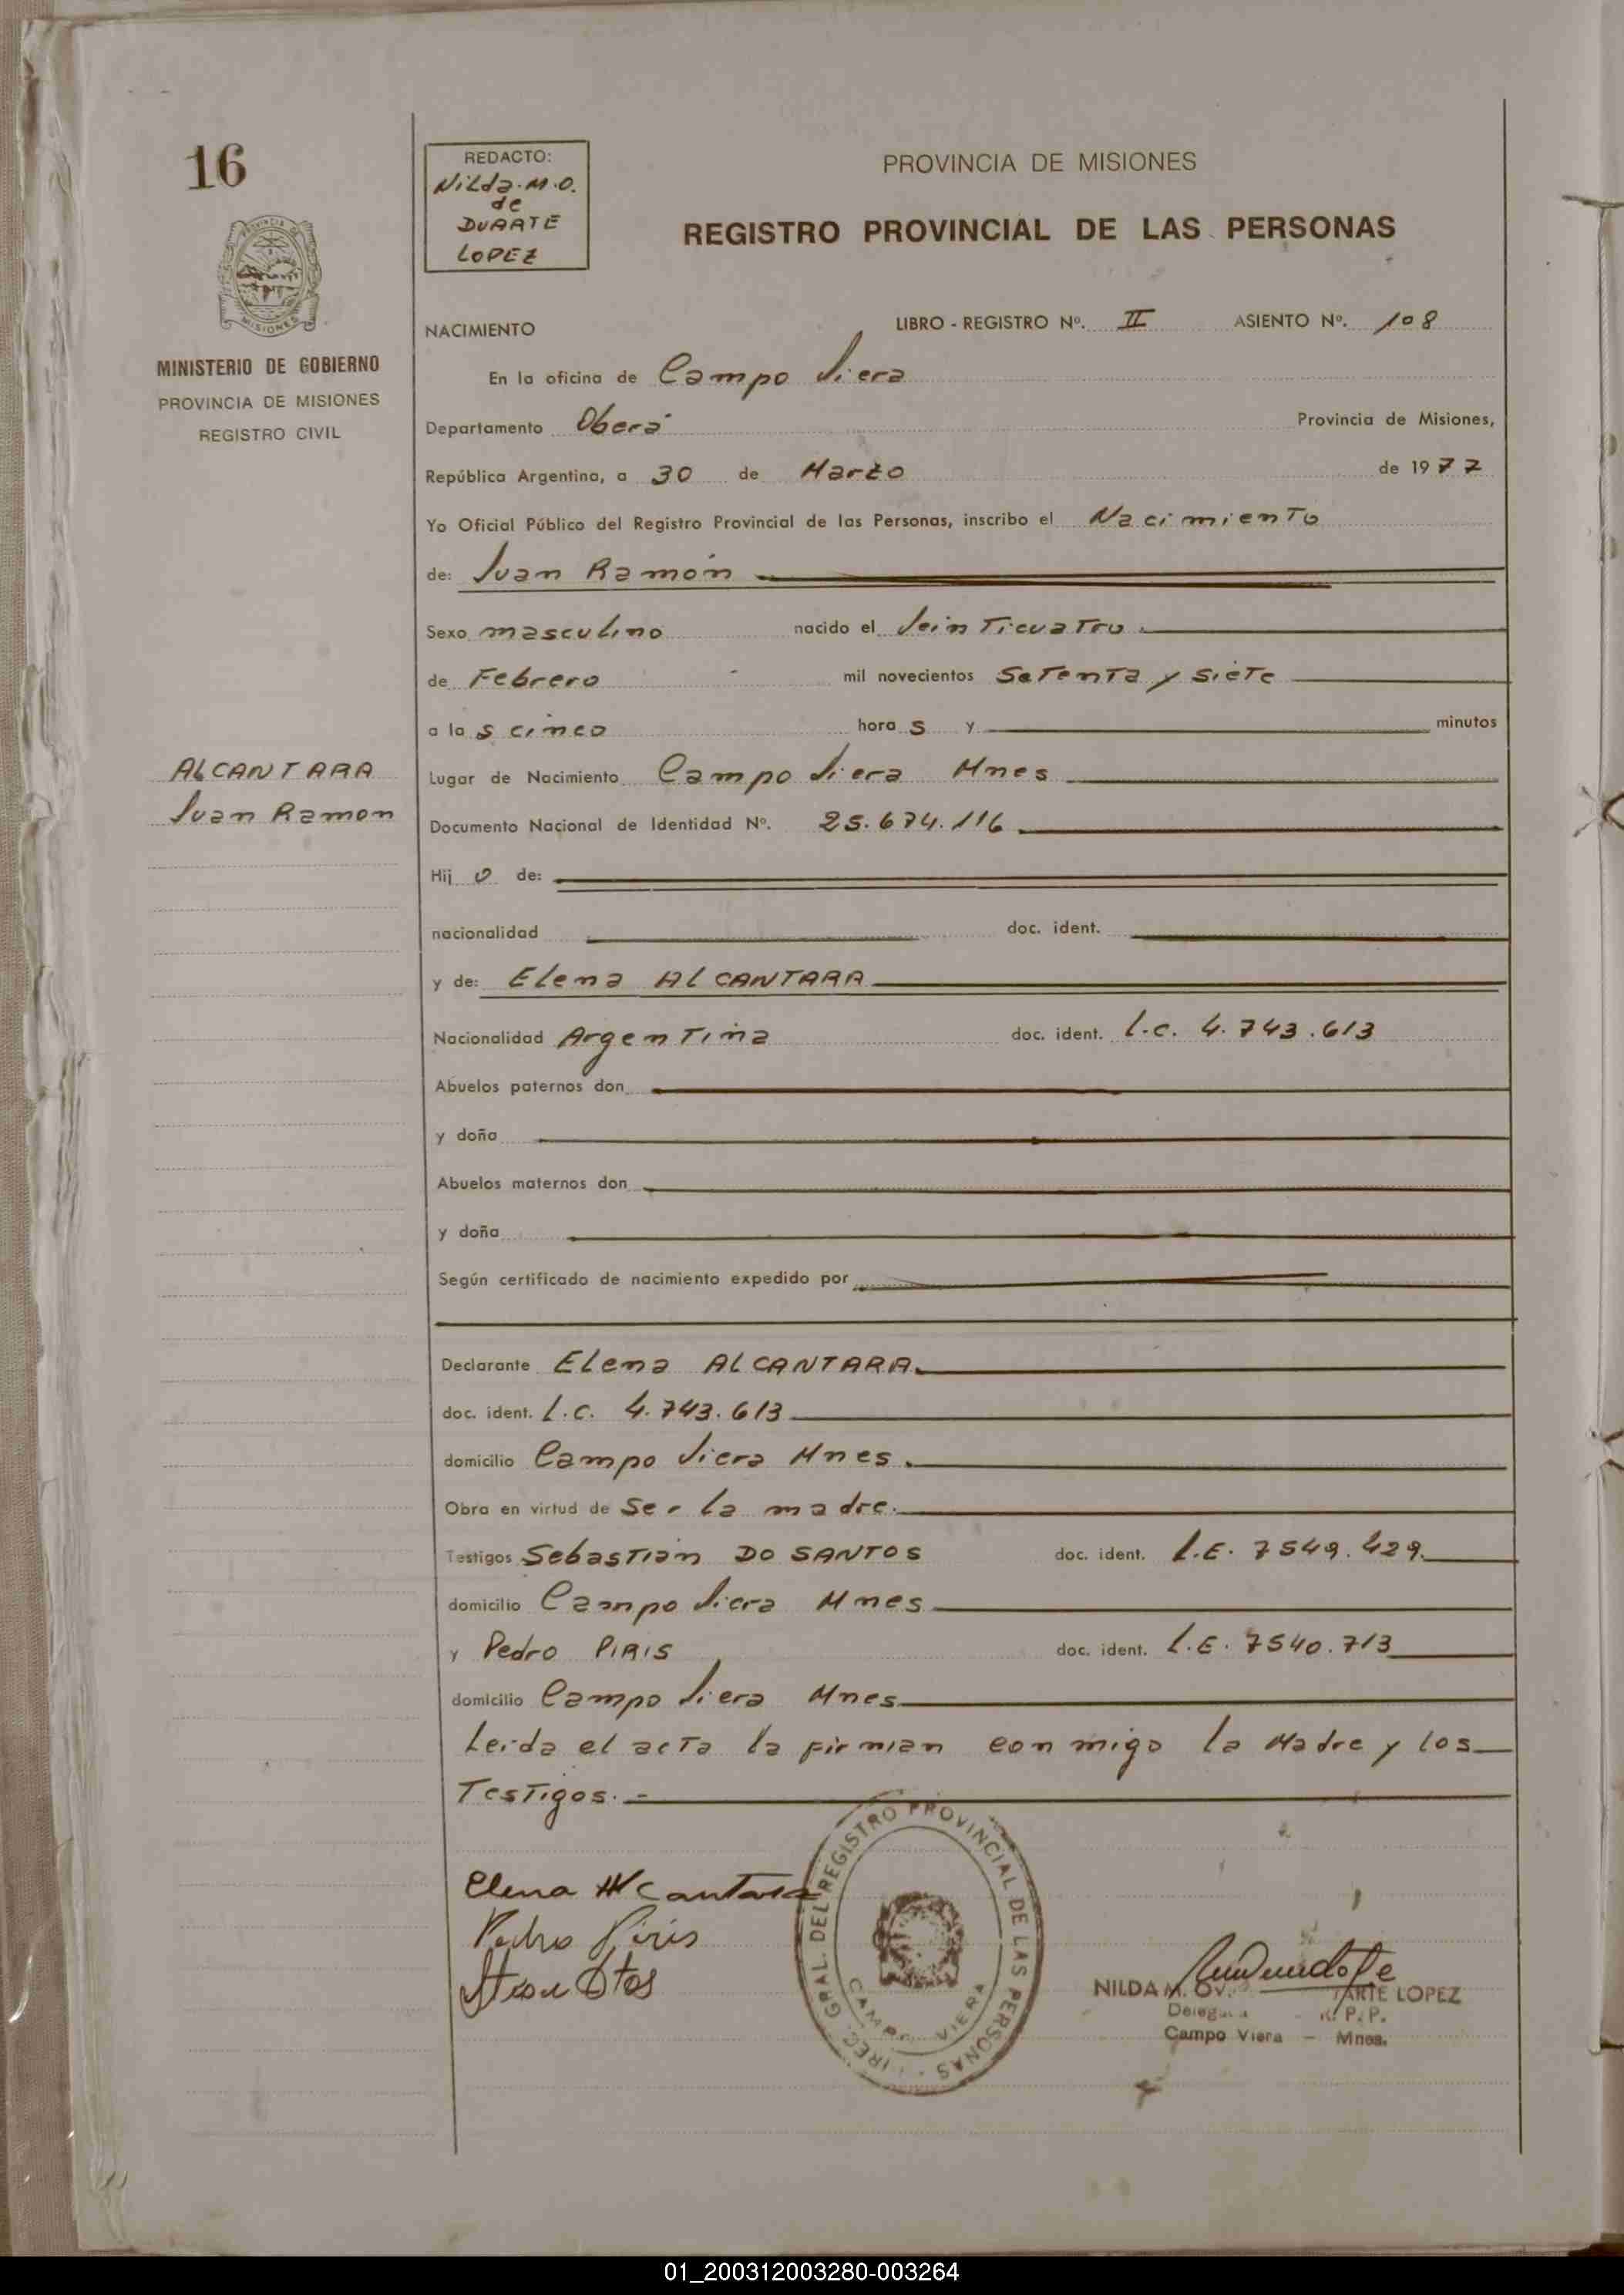 16
REDACTO:
Nilda. M. O.
de
DUARTE
LOPEZ
PROVINCIA DE MISIONES
REGISTRO PROVINCIAL DE LAS PERSONAS
MISIONES
MINISTERIO DE GOBIERNO
PROVINCIA DE MISIONES
REGISTRO CIVIL
NACIMIENTO LIBRO - REGISTRO Nº. II ASIENTO Nº. 108
En la oficina de Campo Viera
Departamento Oberá Provincia de Misiones,
República Argentina, a 30 de Marzo de 1977
Yo Oficial Público del Registro Provincial de las Personas, inscribo el Nacimiento
de: Juan Ramón
Sexo masculino nacido el Veinticuatro
de Febrero mil novecientos Setenta y Siete
a las cinco horas y minutos
ALCANTARA
Juan Ramon
Lugar de Nacimiento Campo Viera Mnes
Documento Nacional de Identidad Nº. 25.674.116
Hijo de:
nacionalidad doc. ident.
y de: Elena ALCANTARA
Nacionalidad Argentina doc. ident. L.C. 4.743.613
Abuelos paternos don
y doña
Abuelos maternos don
y doña
Según certificado de nacimiento expedido por
Declarante Elena ALCANTARA.
doc. ident. L.C. 4.743.613
domicilio Campo Viera Mnes.
Obra en virtud de Ser la madre.
Testigos Sebastian DO SANTOS doc. ident. L.E. 7549.429.
domicilio Campo Viera Mnes
y Pedro PIRIS doc. ident. L.E. 7540.713
domicilio Campo Viera Mnes
Leida el acta la firman conmigo la Madre y los
Testigos. -
Elena Alcantara
Pedro Piris
GRAL. DEL REGISTRO PROVINCIAL DE LAS PERSONAS
CAMPO VIERA
NILDA M. LOPEZ
P. P.
Campo Viera - Mnes.
01_200312003280-003264